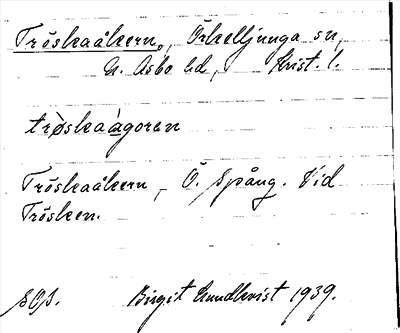 Tröskaåkern, Örkelljunga sn,
N. Åsbo hd, Krist. l.
trøskaågoren
Tröskaåkern, Ö. Spång. Vid
Trösken.
Birgit Lundkvist 1939.